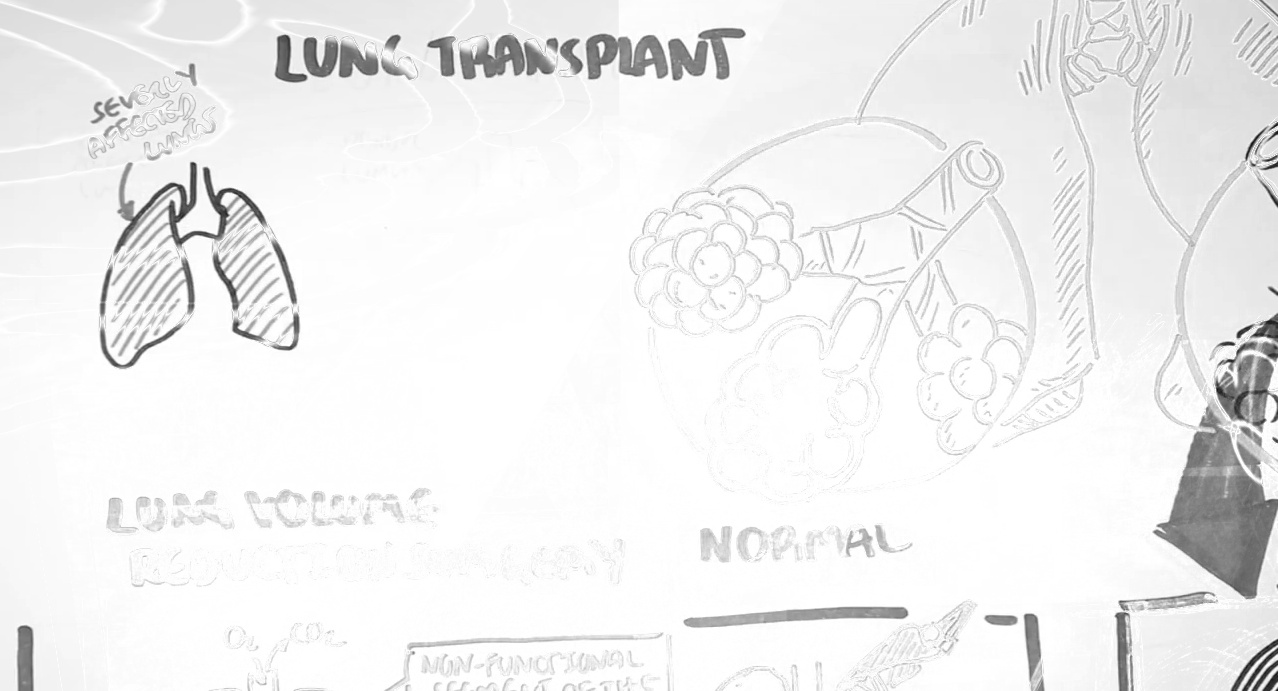 LUNG TRANSPLANT
SEVERLY
AFFECTED
LUNGS
LUNG VOLUME
REDUCTION SURGERY
NORMAL
O₂ CO₂
NON-FUNCTIONAL
SEGMENT OF THE